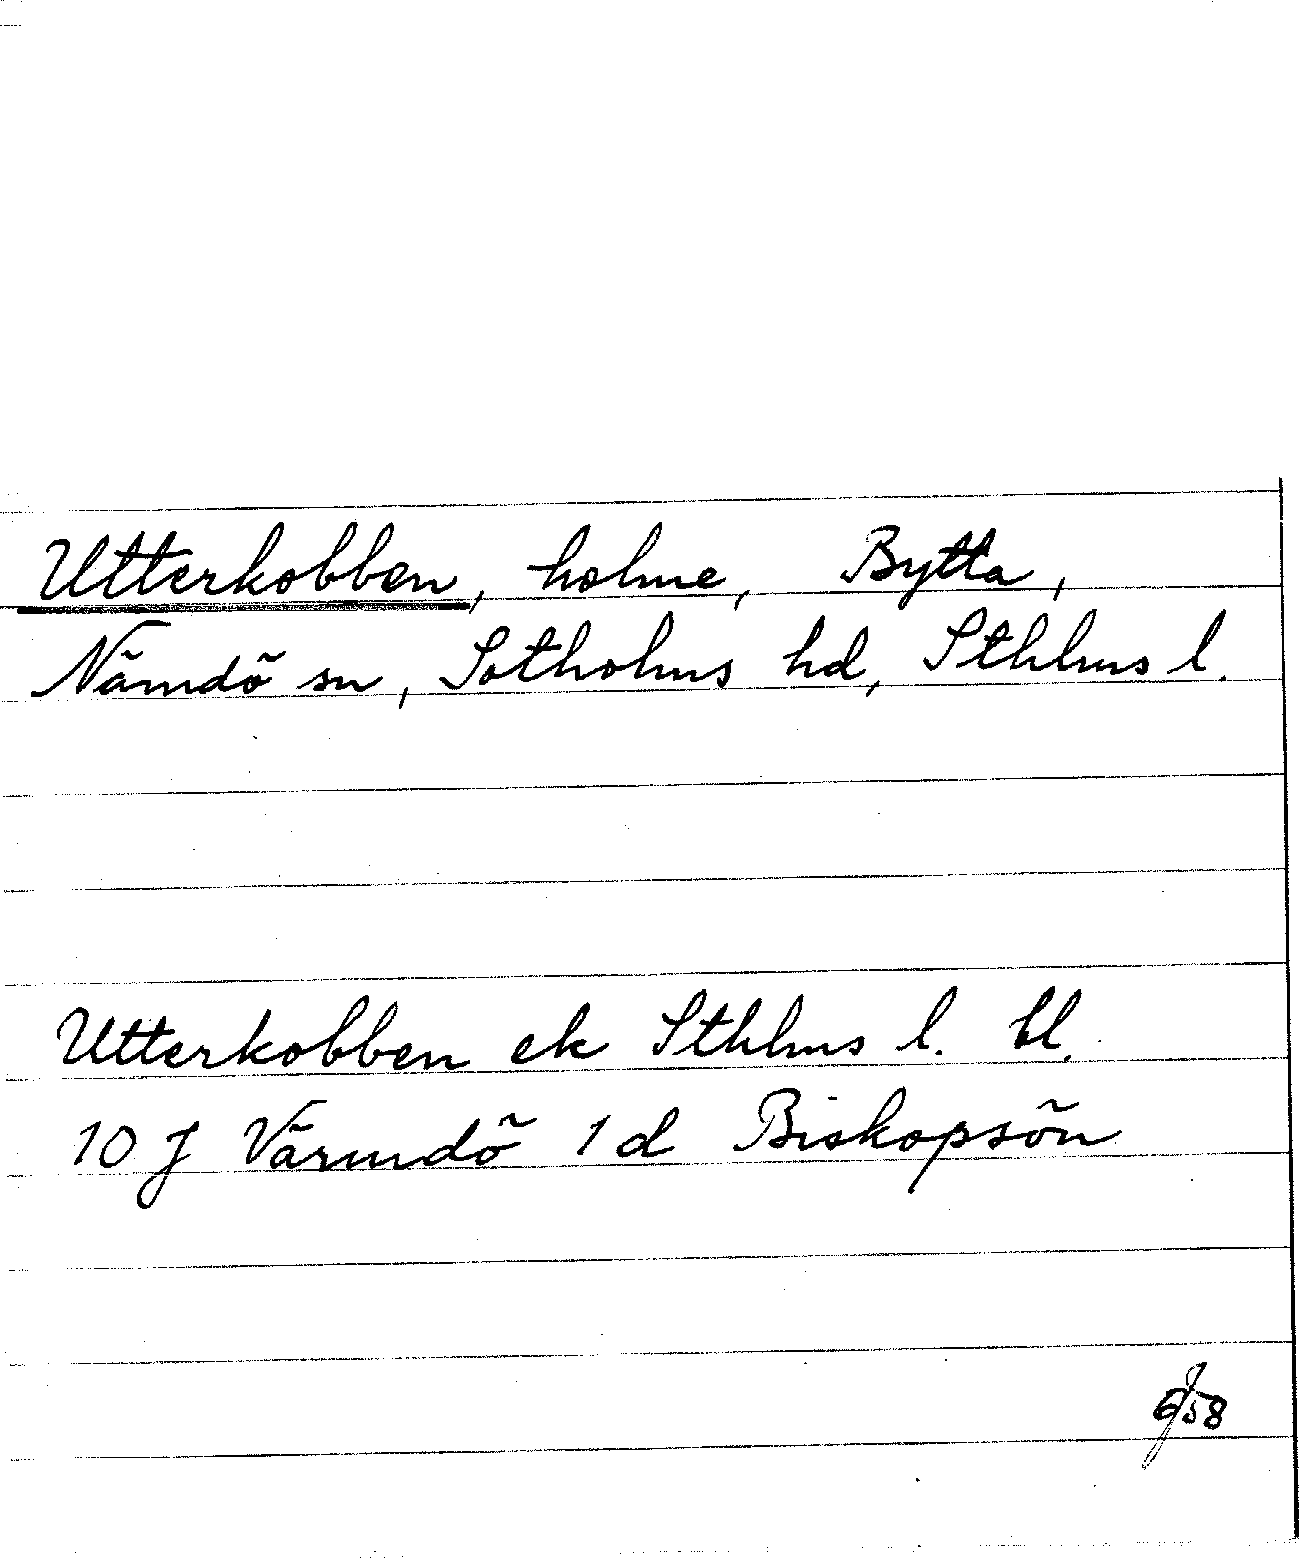 Utterkobben, holme, Bytta,
Nämdö sn, Sotholms hd, Sthlms l.
Utterkobben ek Sthlms l. bl.
10 J Värmdö 1 d Biskopsön
58